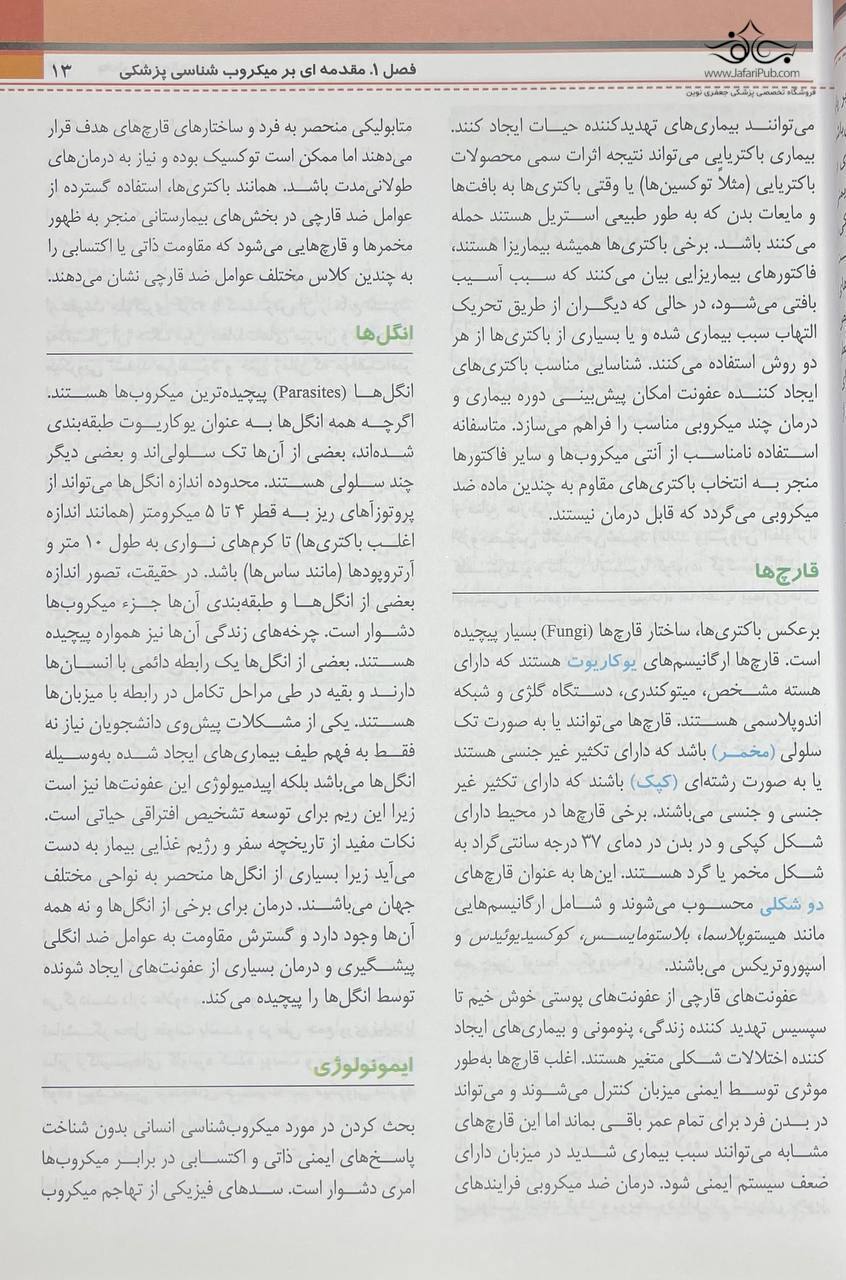 فصل ۱. مقدمه ای بر میکروب شناسی پزشکی
۱۳
www.JafariPub.com
فروشگاه تخصصی پزشکی جعفری نوین
می‌توانند بیماری‌های تهدیدکننده حیات ایجاد کنند.
بیماری باکتریایی می‌تواند نتیجه اثرات سمی محصولات
باکتریایی (مثلاً توکسین‌ها) یا وقتی باکتری‌ها به بافت‌ها
و مایعات بدن که به طور طبیعی استریل هستند حمله
می‌کنند باشد. برخی باکتری‌ها همیشه بیماریزا هستند،
فاکتورهای بیماریزایی بیان می‌کنند که سبب آسیب
بافتی می‌شود، در حالی که دیگران از طریق تحریک
التهاب سبب بیماری شده و یا بسیاری از باکتری‌ها از هر
دو روش استفاده می‌کنند. شناسایی مناسب باکتری‌های
ایجاد کننده عفونت امکان پیش‌بینی دوره بیماری و
درمان چند میکروبی مناسب را فراهم می‌سازد. متاسفانه
استفاده نامناسب از آنتی میکروب‌ها و سایر فاکتورها
منجر به انتخاب باکتری‌های مقاوم به چندین ماده ضد
میکروبی می‌گردد که قابل درمان نیستند.
قارچ‌ها
برعکس باکتری‌ها، ساختار قارچ‌ها (Fungi) بسیار پیچیده
است. قارچ‌ها ارگانیسم‌های یوکاریوت هستند که دارای
هسته مشخص، میتوکندری، دستگاه گلژی و شبکه
اندوپلاسمی هستند. قارچ‌ها می‌توانند یا به صورت تک
سلولی (مخمر) باشد که دارای تکثیر غیر جنسی هستند
یا به صورت رشته‌ای (کپک) باشند که دارای تکثیر غیر
جنسی و جنسی می‌باشند. برخی قارچ‌ها در محیط دارای
شکل کپکی و در بدن در دمای ۳۷ درجه سانتی‌گراد به
شکل مخمر یا گرد هستند. این‌ها به عنوان قارچ‌های
دو شکلی محسوب می‌شوند و شامل ارگانیسم‌هایی
مانند هیستوپلاسما، بلاستومایسس، کوکسیدیوئیدس و
اسپوروتریکس می‌باشند.
عفونت‌های قارچی از عفونت‌های پوستی خوش خیم تا
سپسیس تهدید کننده زندگی، پنومونی و بیماری‌های ایجاد
کننده اختلالات شکلی متغیر هستند. اغلب قارچ‌ها به‌طور
موثری توسط ایمنی میزبان کنترل می‌شوند و می‌تواند
در بدن فرد برای تمام عمر باقی بماند اما این قارچ‌های
مشابه می‌توانند سبب بیماری شدید در میزبان دارای
ضعف سیستم ایمنی شود. درمان ضد میکروبی فرایندهای
متابولیکی منحصر به فرد و ساختارهای قارچ‌های هدف قرار
می‌دهند اما ممکن است توکسیک بوده و نیاز به درمان‌های
طولانی‌مدت باشد. همانند باکتری‌ها، استفاده گسترده از
عوامل ضد قارچی در بخش‌های بیمارستانی منجر به ظهور
مخمرها و قارچ‌هایی می‌شود که مقاومت ذاتی یا اکتسابی را
به چندین کلاس مختلف عوامل ضد قارچی نشان می‌دهند.
انگل‌ها
انگل‌ها (Parasites) پیچیده‌ترین میکروب‌ها هستند.
اگرچه همه انگل‌ها به عنوان یوکاریوت طبقه‌بندی
شده‌اند، بعضی از آن‌ها تک سلولی‌اند و بعضی دیگر
چند سلولی هستند. محدوده اندازه انگل‌ها می‌تواند از
پروتوزآهای ریز به قطر ۴ تا ۵ میکرومتر (همانند اندازه
اغلب باکتری‌ها) تا کرم‌های نواری به طول ۱۰ متر و
آرتروپودها (مانند ساس‌ها) باشد. در حقیقت، تصور اندازه
بعضی از انگل‌ها و طبقه‌بندی آن‌ها جزء میکروب‌ها
دشوار است. چرخه‌های زندگی آن‌ها نیز همواره پیچیده
هستند. بعضی از انگل‌ها یک رابطه دائمی با انسان‌ها
دارند و بقیه در طی مراحل تکامل در رابطه با میزبان‌ها
هستند. یکی از مشکلات پیش‌وی دانشجویان نیاز نه
فقط به فهم طیف بیماری‌های ایجاد شده به‌وسیله
انگل‌ها می‌باشد بلکه اپیدمیولوژی این عفونت‌ها نیز است
زیرا این ریم برای توسعه تشخیص افتراقی حیاتی است.
نکات مفید از تاریخچه سفر و رژیم غذایی بیمار به دست
می‌آید زیرا بسیاری از انگل‌ها منحصر به نواحی مختلف
جهان می‌باشند. درمان برای برخی از انگل‌ها و نه همه
آن‌ها وجود دارد و گسترش مقاومت به عوامل ضد انگلی
پیشگیری و درمان بسیاری از عفونت‌های ایجاد شونده
توسط انگل‌ها را پیچیده می‌کند.
ایمونولوژی
بحث کردن در مورد میکروب‌شناسی انسانی بدون شناخت
پاسخ‌های ایمنی ذاتی و اکتسابی در برابر میکروب‌ها
امری دشوار است. سدهای فیزیکی از تهاجم میکروب